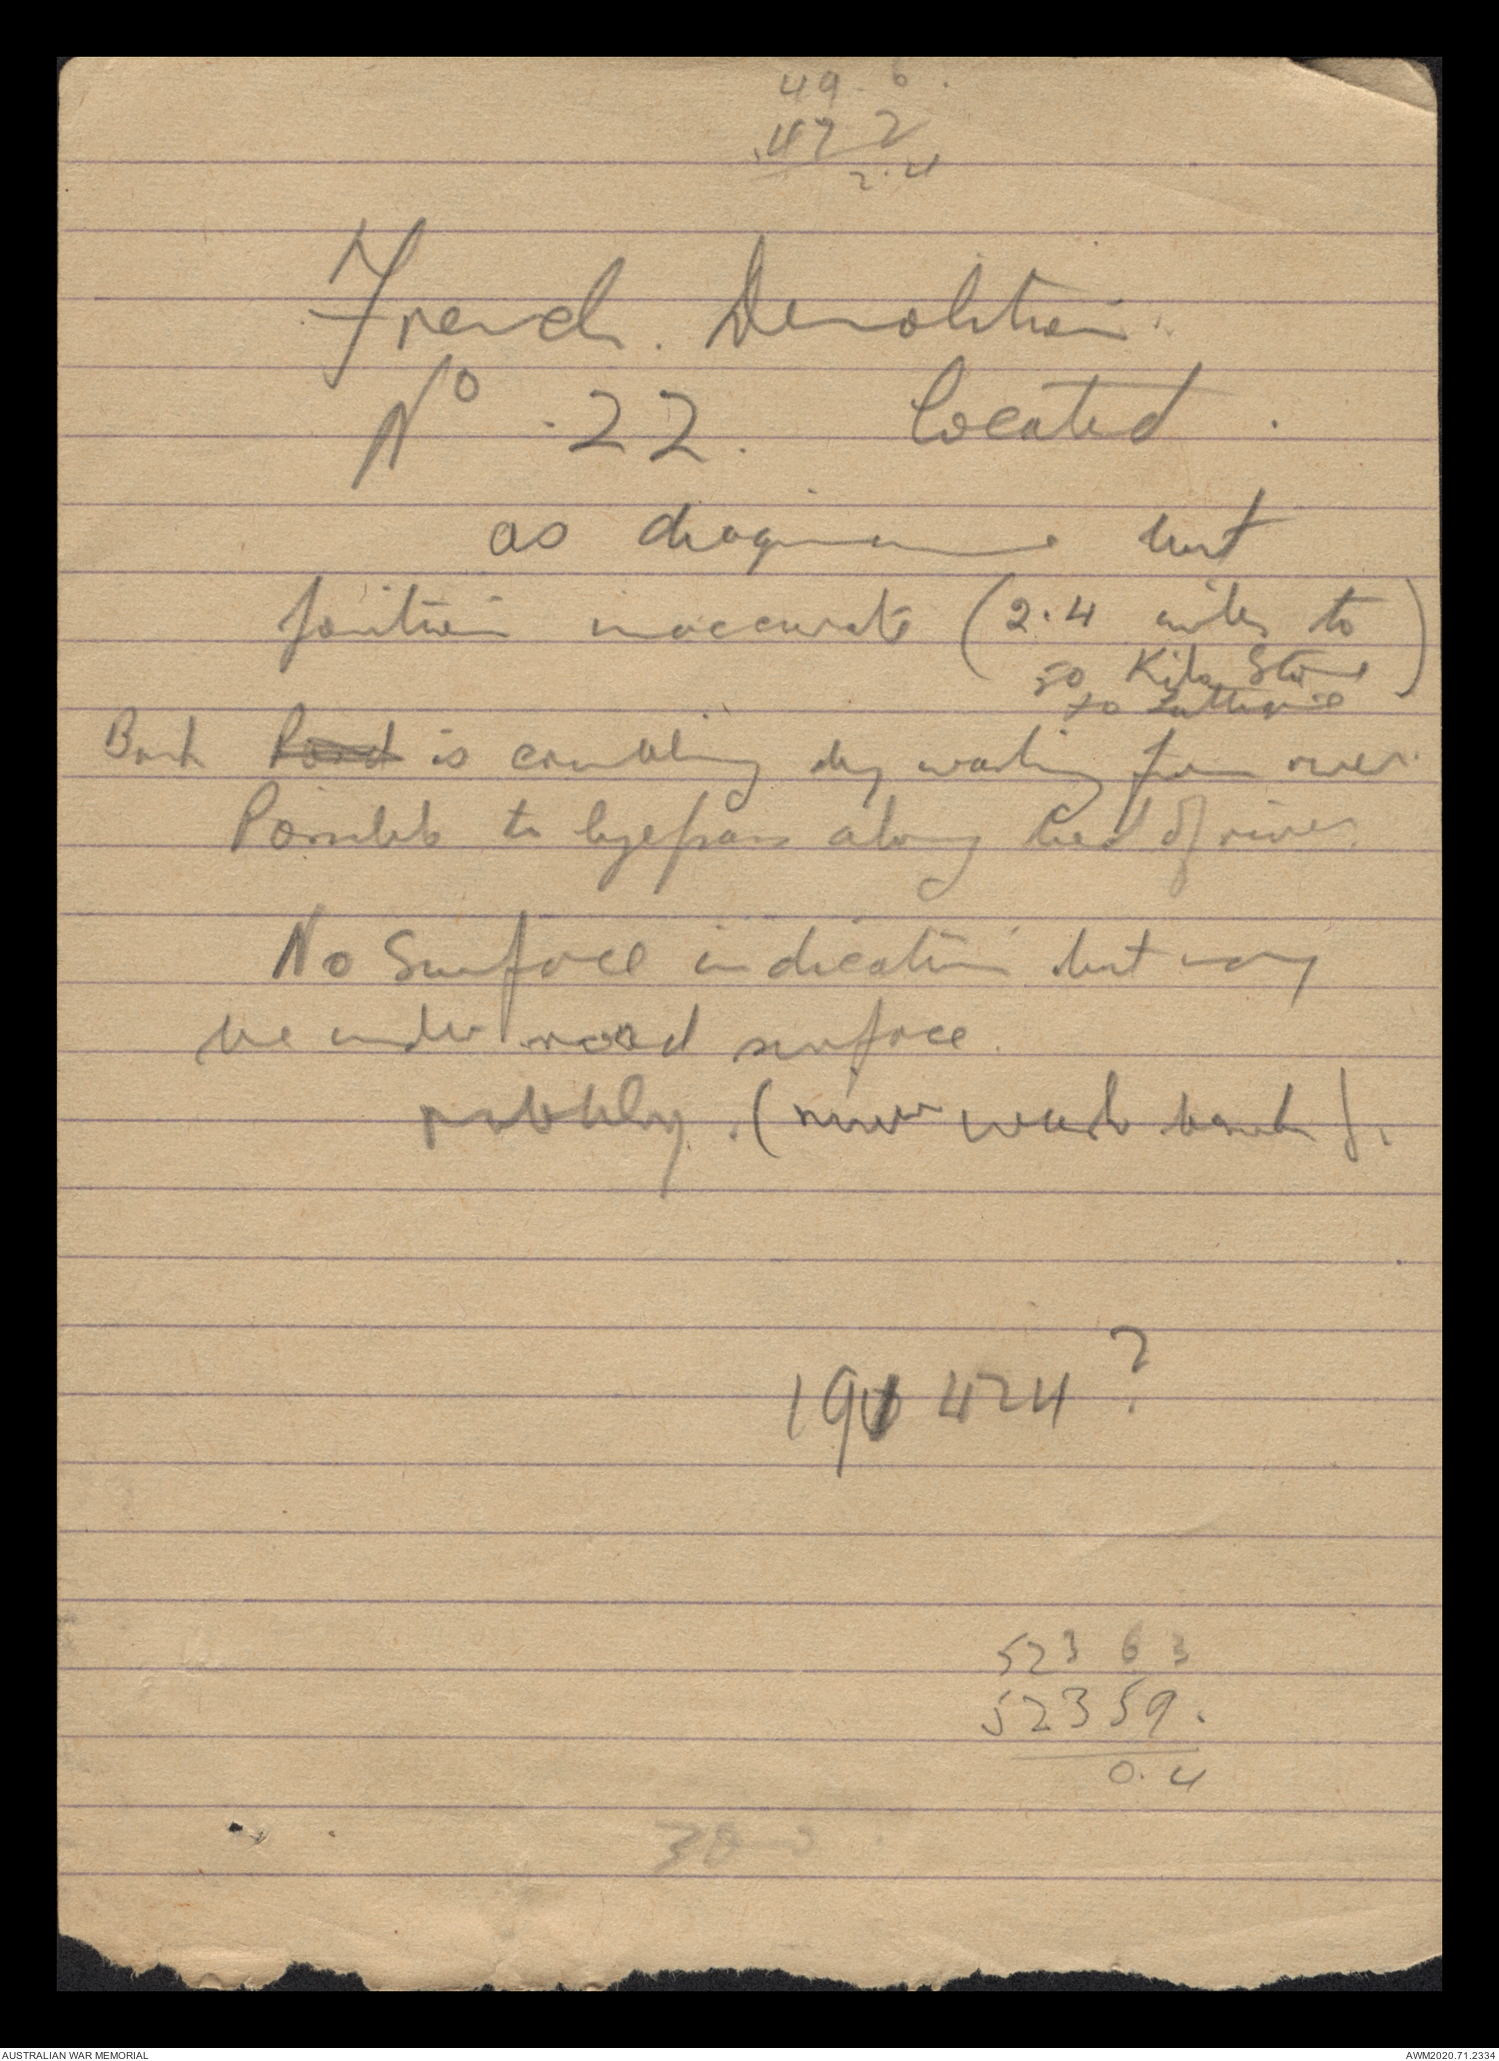 49.6
47 2
2.4
French. Demolition
No. 22. located.
as diagram but
position inaccurate (2.4 miles to
50 Kilo Stone
to Lattaquie)
Bank Road is crumbling by washing from river.
Possible to byepass along bed of river.
No Surface indication but may
be under road surface.
probably. (river wash bank).
191 424?
52363
52359.
0.4
AUSTRALIAN WAR MEMORIAL
AWM2020.71.2334